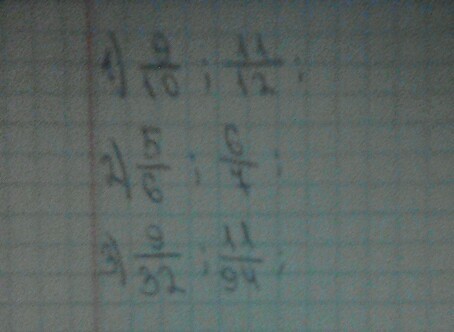 1) 9/10 ; 11/12 ;
2) 5/6 ; 6/7 ;
3) 9/32 ; 11/94 ;